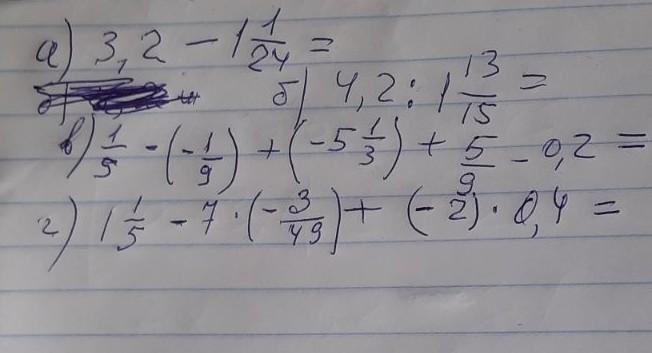 а) 3,2 - 1 1/24 =
б) 4,2 : 1 13/15 =
в) 1/5 - (-1/9) + (-5 1/3) + 5/9 - 0,2 =
г) 1 1/5 - 7 · (-3/49) + (-2) · 0,4 =